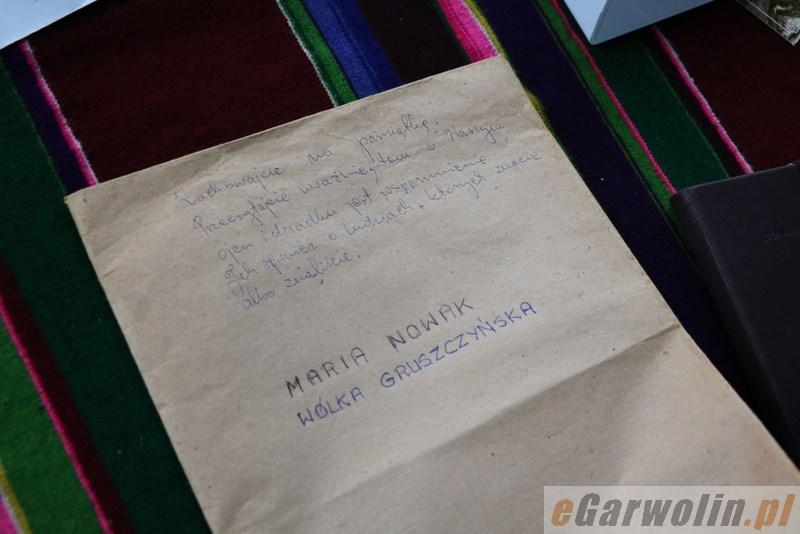 Zachowajcie na pamiątkę.
Przeczytajcie uważnie, tam o Waszym
ojcu i dziadku jest wspomnienie
jak również o ludziach, których znacie
albo znaliście.
MARIA NOWAK
WÓLKA GRUSZCZYŃSKA
eGarwolin.pl